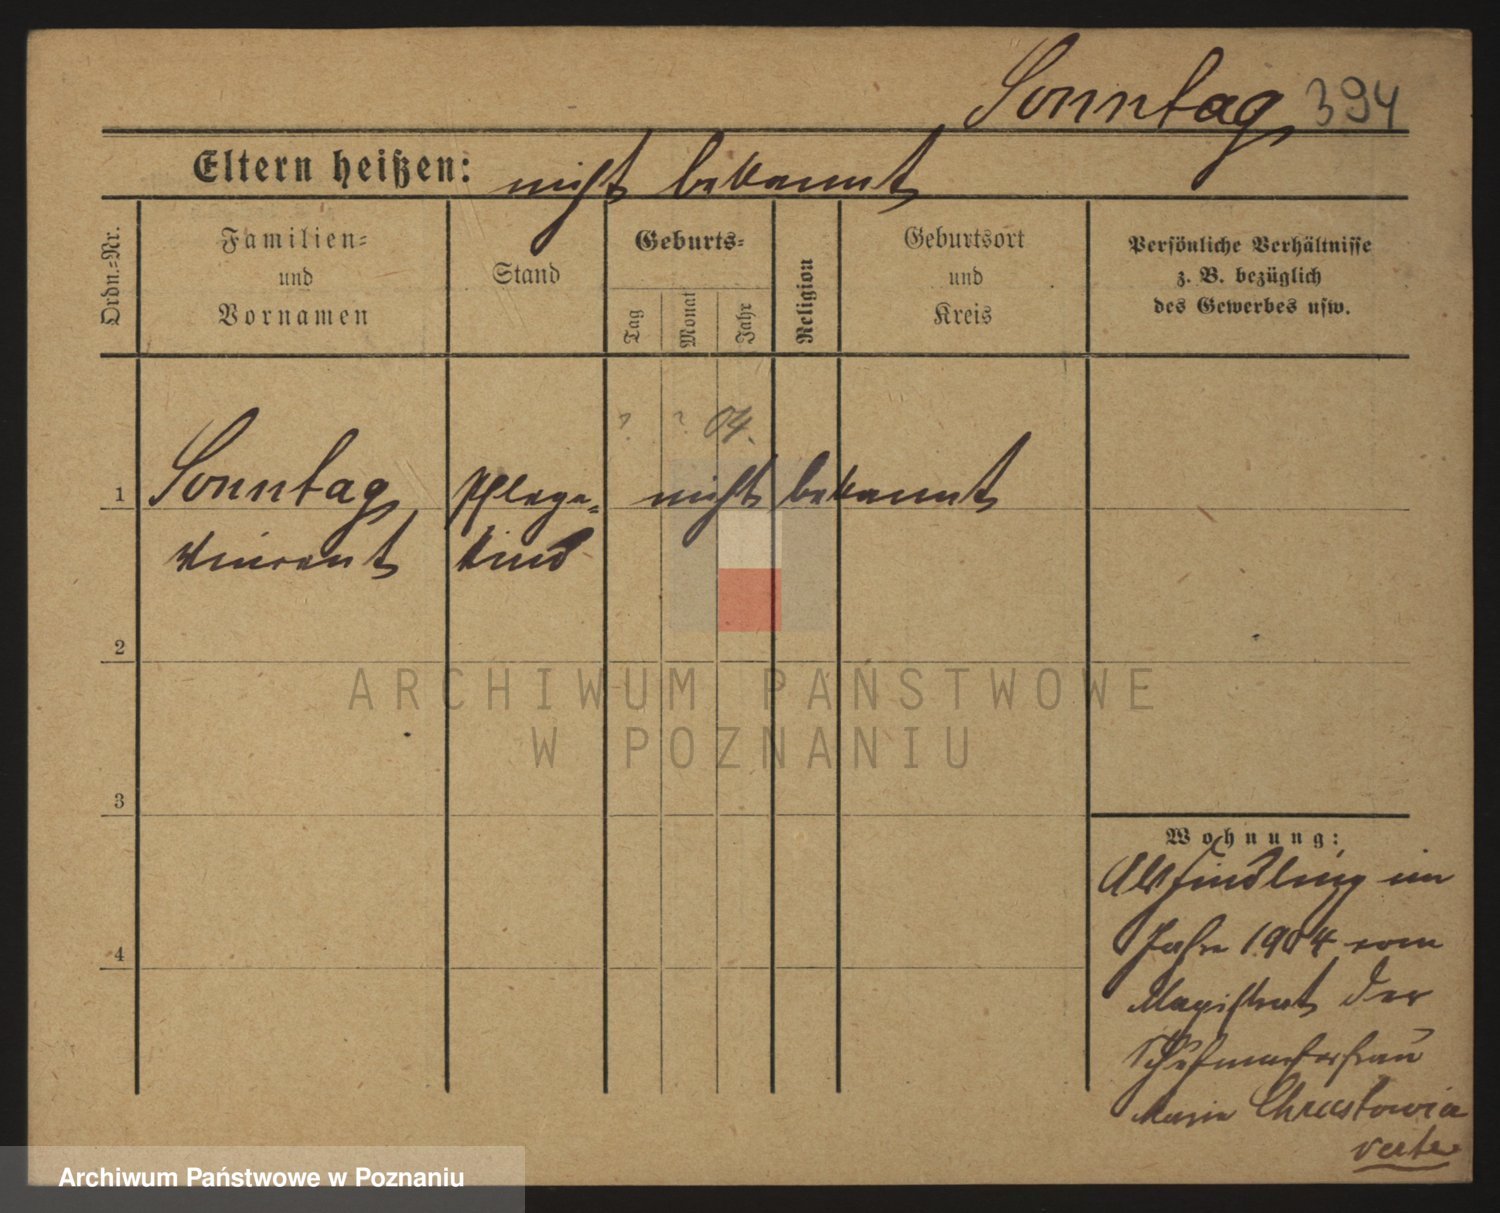 Sonntag 394
Eltern heißen: nicht bekannt
Ordn.=Nr.
Familien=
und
Vornamen
Stand
Geburts=
Tag
Monat
Jahr
Religion
Geburtsort
und
Kreis
Persönliche Verhältnisse
z. B. bezüglich
des Gewerbes usw.
? ? 04.
1 Sonntag Pflege= nicht bekannt
Vincent kind
2
3
4
Wohnung:
Als Findling im
Jahre 1904 vom
Magistrat der
Schuhmacherfrau
Maria
verte
ARCHIWUM PAŃSTWOWE
W POZNANIU
Archiwum Państwowe w Poznaniu